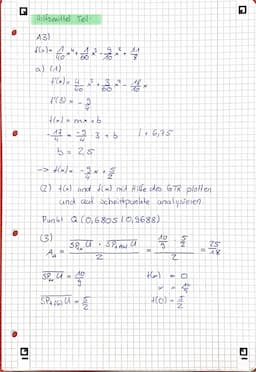 Hilfsmittel Teil
A3)
f(x)= 1/40 x⁴ + 1/60 x³ - 9/10 x² + 11/8
a) (1)
f'(x) = 4/40 x³ + 3/60 x² - 18/10 x
f'(3) = - 9/4
t(x) = mx+b
-17/4 = -9/4 3 + b | + 6,75
b = 2,5
→ t(x)= - 9/4 x + 5/2
(2) f(x) und t(x) mit Hilfe des GTR plotten
und auf Schnittpunkte analysieren
Punkt Q (0,6805 | 0,9688)
(3)
= 10/9 5/2 / 2 = 25/18
= 10/9 t(x) = 0
x = 10/9
= 5/2 t(0) = 5/2